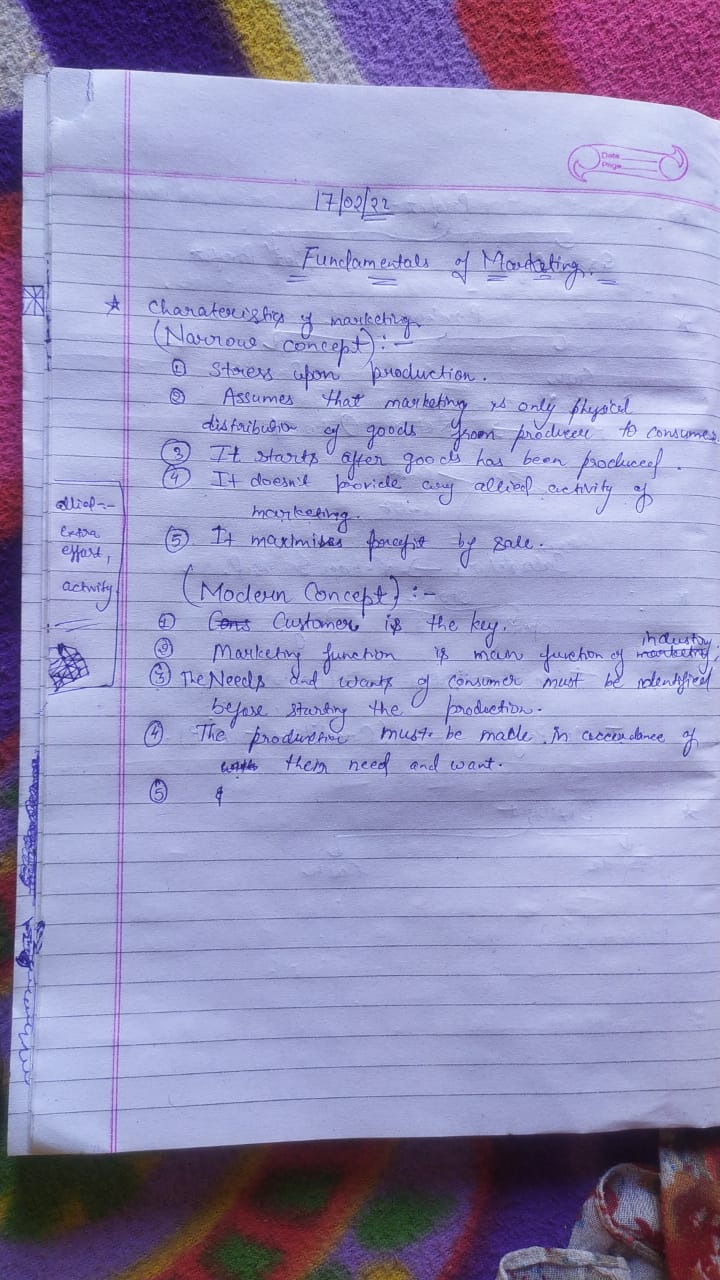 Date
Page
17/02/22
Fundamentals of Marketing.
☆ Charateristics of marketing
(Narrow concept) :-
① Stress upon production.
② Assumes that marketing is only physical
distribution of goods from producer to consumer
③ It starts after goods has been produced.
④ It doesn't provide any allied activity of
marketing.
⑤ It maximises profit by sale.
allied:-
Extra
effort,
activity
(Modern Concept) :-
① Cons Customer is the key.
industry
② Marketing function is main function of marketing.
③ The Needs and wants of consumer must be identified
before starting the production.
④ The production must be made in accordance of
with their need and want.
⑤